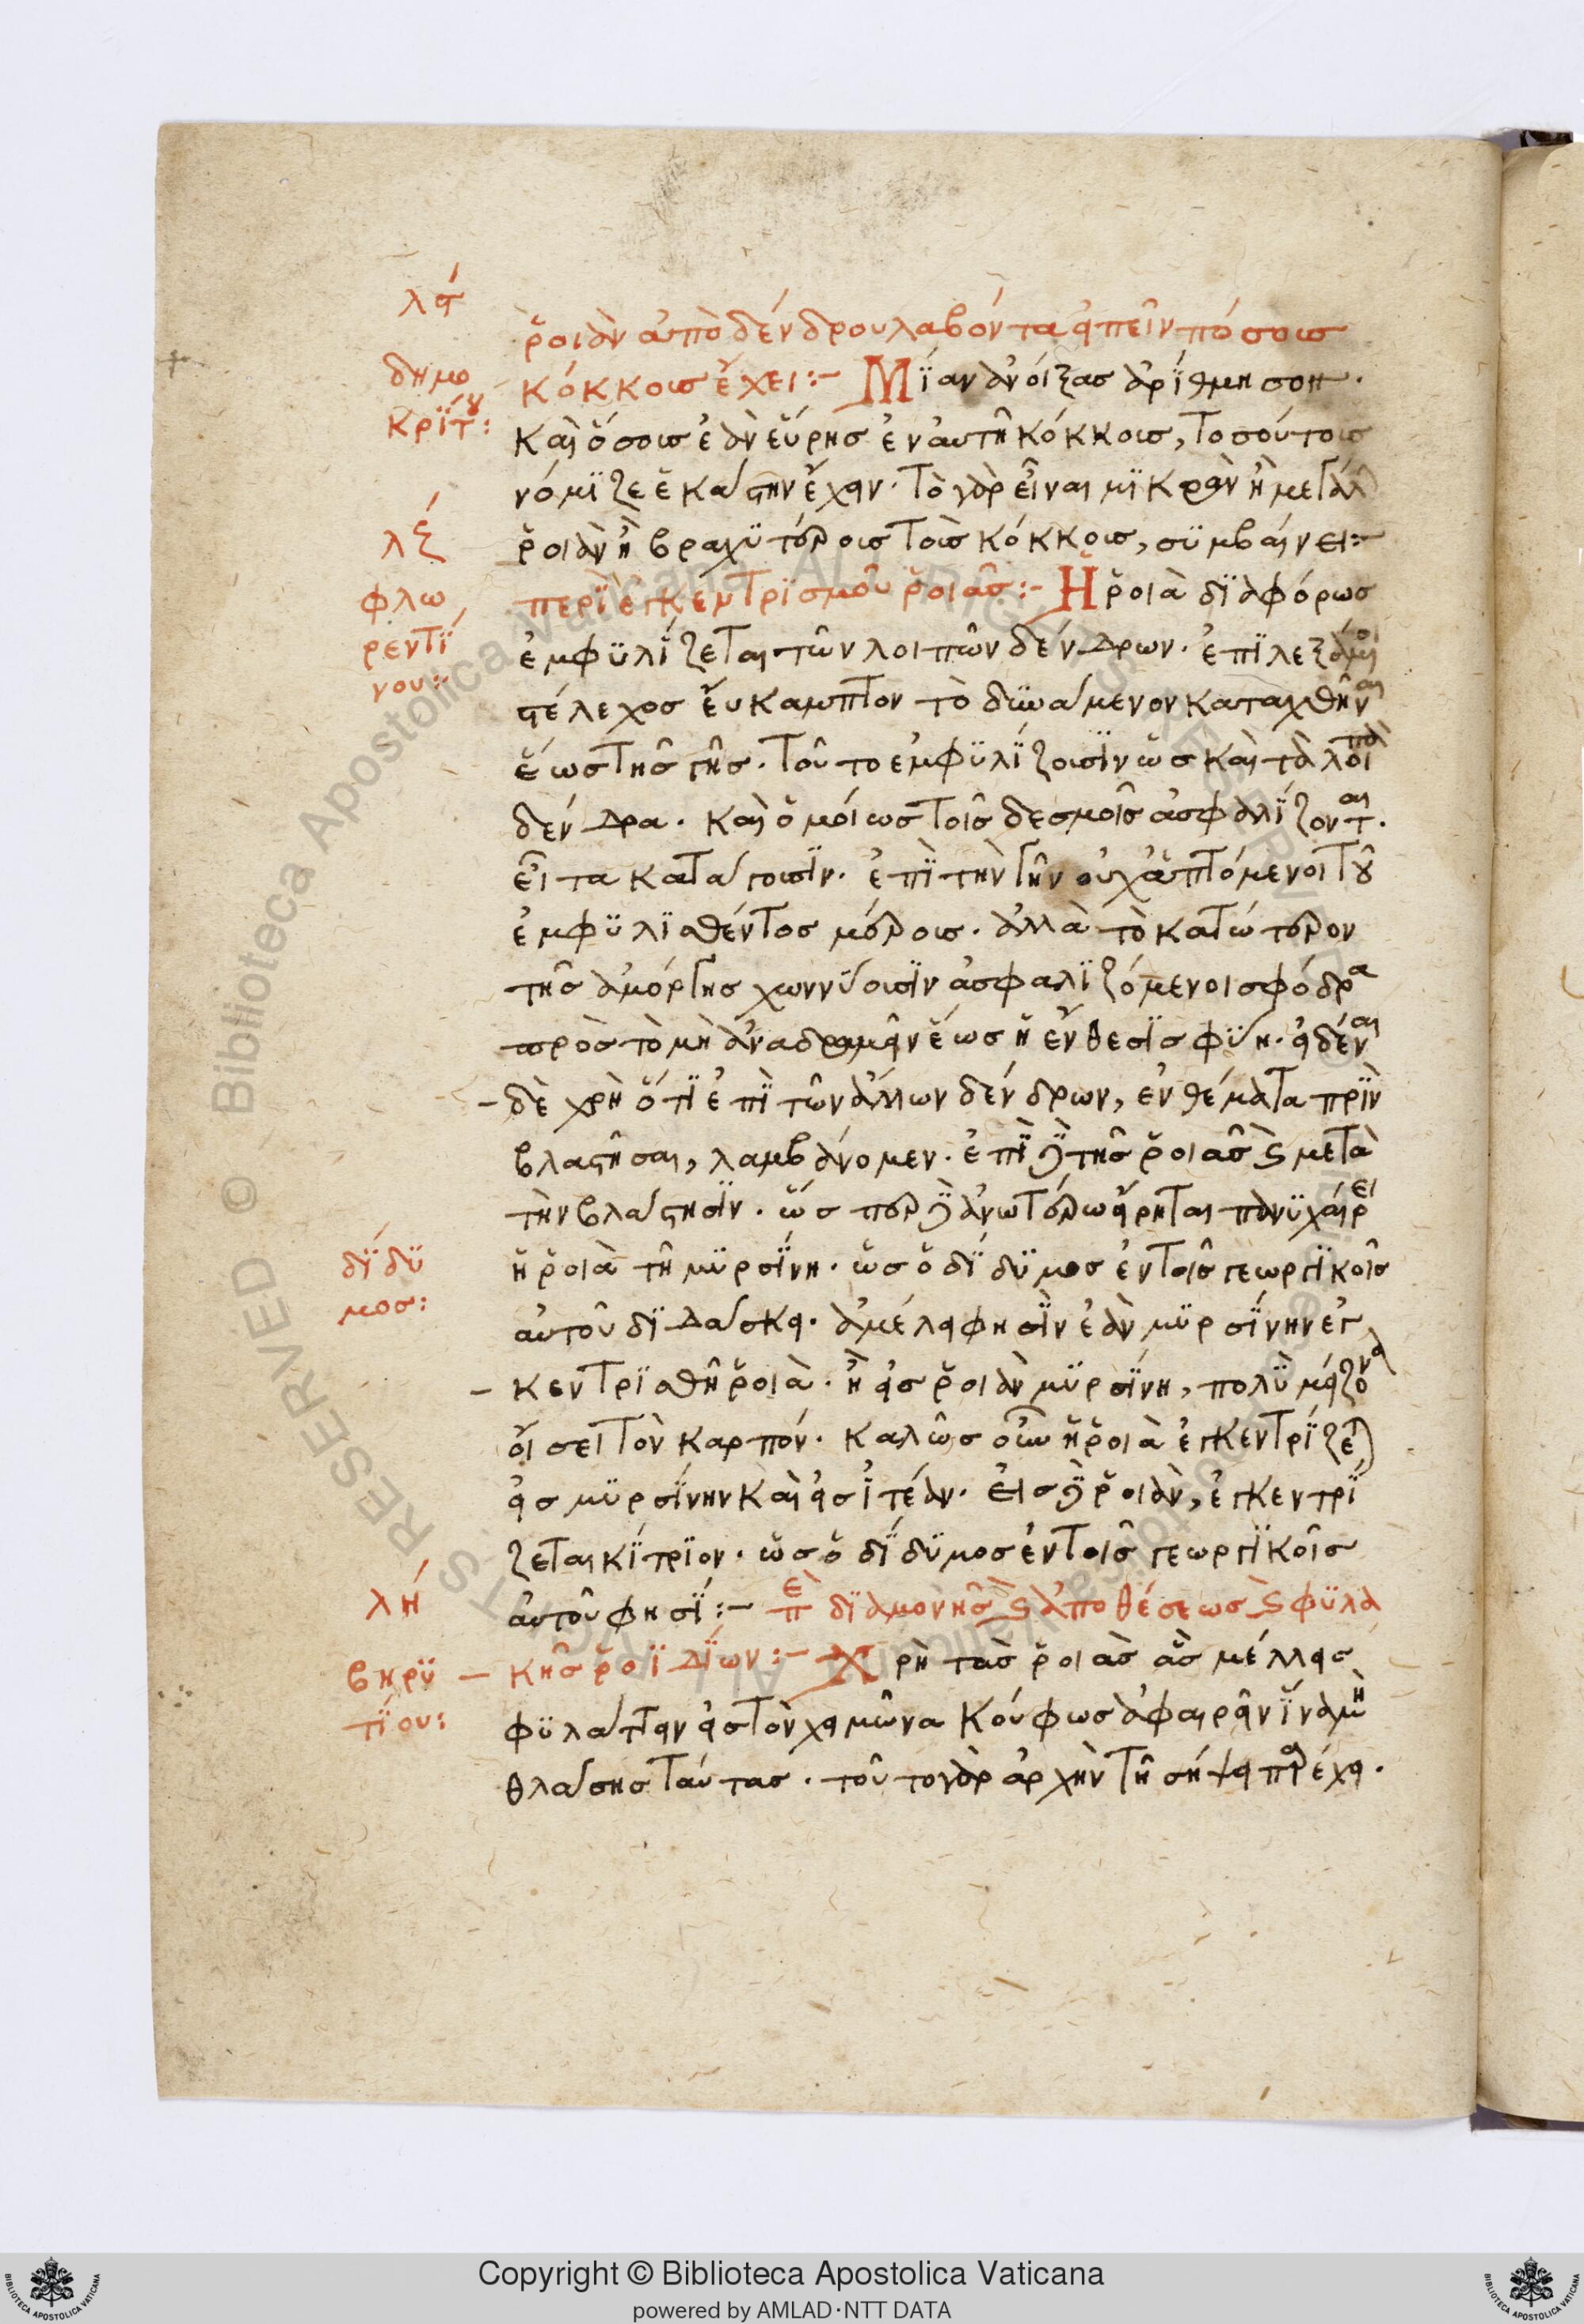 λϛ
ῥοιὰν ἀπὸ δένδρου λαβόντα εἰπεῖν πόσους
δημο
κρίτου:
κόκκους ἔχει:— Μίαν ἀνοίξας ἀρίθμησον.
καὶ ὅσους ἐὰν εὕρης ἐν αὐτῆ κόκκους, τοσούτους
νόμιζε ἑκάστην ἔχειν. τὸ γὰρ εἶναι μικρὰν ἢ μεγάλ
λζ
ῥοιὰν ἢ βραχυτέροις τοῖς κόκκοις, συμβαίνει:—
φλω
ρεντί
νου:
περὶ ἐγκεντρισμοῦ ῥοιᾶς:— Ἡ ῥοιὰ διαφόρως
ἐμφυλίζεται τῶν λοιπῶν δένδρων. ἐπιλεξάμενοι
στέλεχος εὔκαμπτον τὸ δυνάμενον καταχθῆναι
ἕως τῆς γῆς. τοῦτο ἐμφυλίζουσιν ὡς καὶ τὰ λοιπὰ
δένδρα. καὶ ὁμοίως τοῖς δεσμοῖς ἀσφαλίζονται.
εἶτα κατάγουσιν. ἐπὶ τὴν γῆν οὐχ ἁπτόμενοι τοῦ
ἐμφυλιαθέντος μέρους. ἀλλὰ τὸ κατώτερον
τῆς ἀμόργης χωννύουσιν ἀσφαλιζόμενοι σφόδρα
πρὸς τὸ μὴ ἀναδραμεῖν ἕως ἡ ἔνθεσις φύη. εἰδέναι
δὲ χρὴ ὅτι ἐπὶ τῶν ἄλλων δένδρων, ἐνθέματα πρὶν
βλαστῆσαι, λαμβάνομεν. ἐπὶ δὲ τῆς ῥοιᾶς καὶ μετὰ
τὴν βλάστησιν. ὥσπερ δὲ ἀνωτέρω εἴρηται πάνυ χαίρει
δίδυ
μος:
ἡ ῥοιὰ τῆ μυρσίνη. ὡς ὁ δίδυμος ἐν τοῖς γεωργικοῖς
αὐτοῦ διδάσκει. ἀμέλει φησὶν ἐὰν μυρσίνην ἐγ
κεντριαθῆ ῥοιὰ. ἢ εἰς ῥοιὰν μυρσίνη, πολὺ μείζονα
οἴσει τὸν καρπόν. καλῶς οὖν ἡ ῥοιὰ ἐγκεντρίζεται
εἰς μυρσίνην καὶ εἰς ἰτέαν. εἰς δὲ ῥοιὰν, ἐγκεντρί
ζεται κίτριον. ὡς ὁ δίδυμος ἐν τοῖς γεωργικοῖς
λη
αὐτοῦ φησί:— περὶ διαμονῆς καὶ ἀποθέσεως καὶ φυλα
βηρυ
τίου:
κῆς ῥοϊδίων:— Χρὴ τὰς ῥοιὰς ἃς μέλλεις
φυλάττειν εἰς τὸν χειμῶνα κούφως ἀφαιρεῖν ἵνα μὴ
θλάσης ταύτας. τοῦτο γὰρ ἀρχὴν τῆ σήψει παρέχει.
Copyright © Biblioteca Apostolica Vaticana
powered by AMLAD·NTT DATA